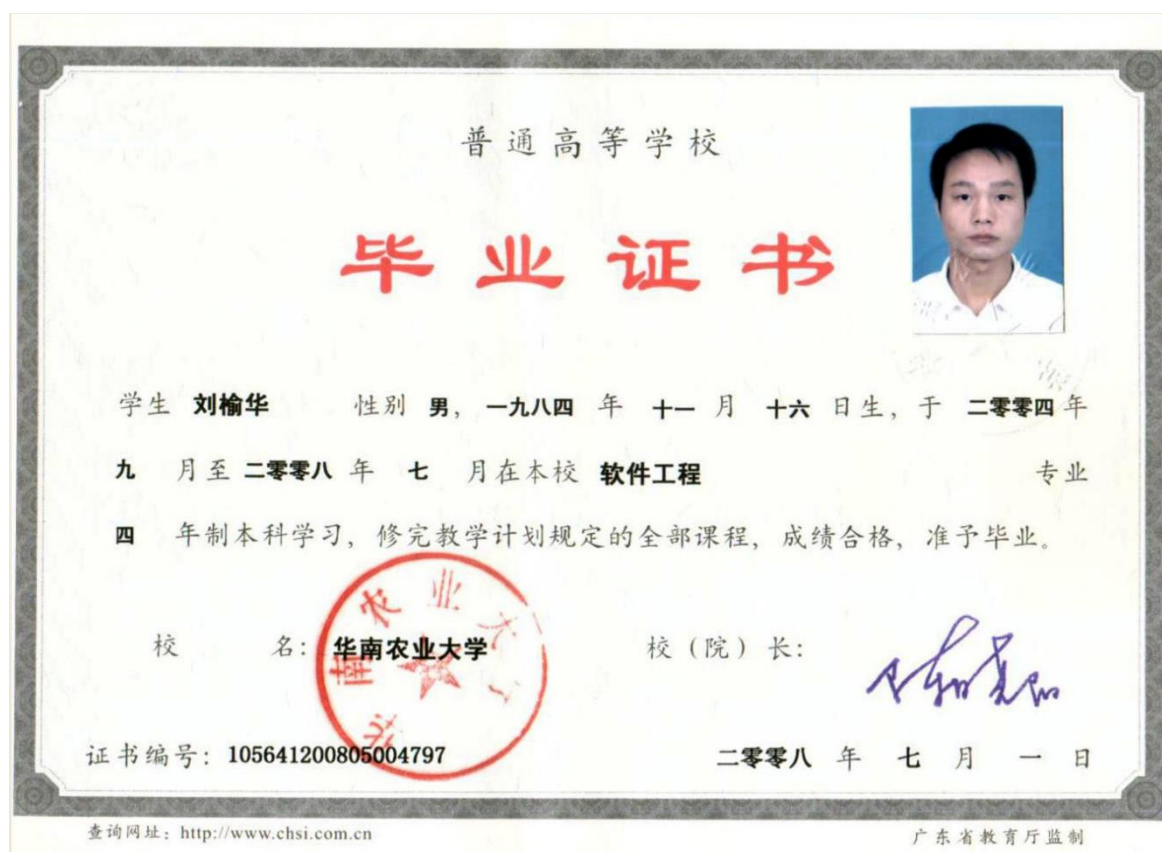 普通高等学校
毕业证书
学生 刘榆华 性别 男，一九八四 年 十一 月 十六 日生，于 二零零四 年
九 月至 二零零八 年 七 月在本校 软件工程 专业
四 年制本科学习，修完教学计划规定的全部课程，成绩合格，准予毕业。
校 名：华南农业大学 校（院）长：
华南农业大学
证书编号：105641200805004797 二零零八 年 七 月 一 日
查询网址：http://www.chsi.com.cn 广东省教育厅监制